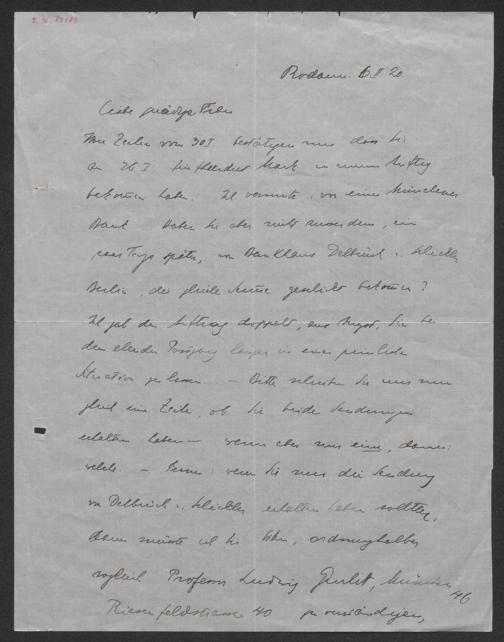 Rodaun. 6.II.20.
Liebe gnädige Frau
Ihre Zeilen vom 30 I. bestätigen mir dass Sie
am 26 I fünfhundert Mark in meinem Auftrag
bekommen haben. Ich vermute, von einer Münchener
Bank. Haben Sie aber nicht ausserdem, ein
paar Tage später, von Bankhaus Delbrück u. Schickler
Berlin, die gleiche Summe geschickt bekommen?
Ich gab den Auftrag doppelt, aus Angst, Sie bei
dem elenden Postgang länger in einer peinlichen
Situation zu lassen. – Bitte schreiben Sie mir nun
gleich eine Zeile, ob Sie beide Sendungen
erhalten haben – wenn aber nur eine, dann:
welche. – Ferner: wenn Sie nur die Sendung
von Delbrück u. Schickler erhalten haben sollten,
dann müsste ich Sie bitten, ordnungshalber
sogleich Professor Ludwig Curtius, München
Riesenfeldstrasse 40 zu verständigen,